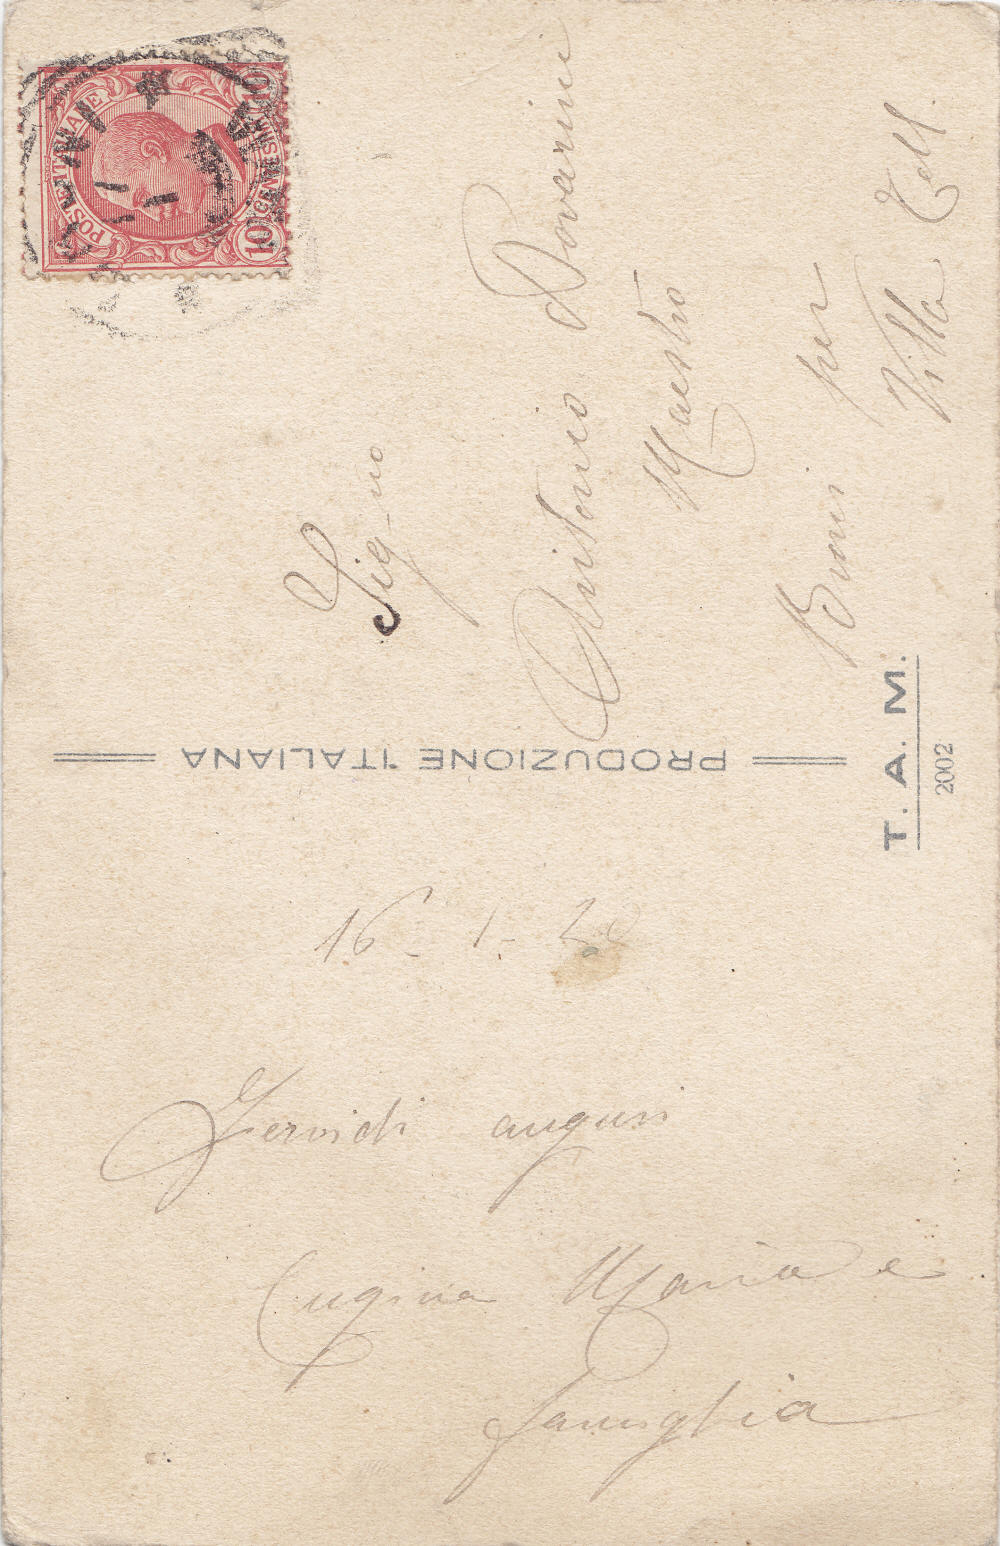 POSTE ITALIANE
10 CENTESIMI 10
Sig-no
Antonio Bovarini
Maestro
per
Villa Coll.
PRODUZIONE ITALIANA
T. A. M.
2002
16-1-20
Fervidi auguri
Cugina Maria e
famiglia